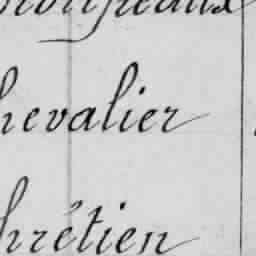 hevalier
hrétien